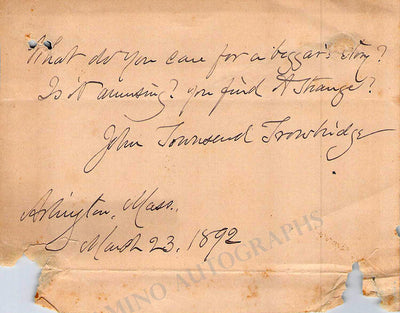 What do you care for a beggar's story?
Is it amusing? you find it strange?
John Townsend Trowbridge
Arlington, Mass.
March 23, 1892
TAMINO AUTOGRAPHS